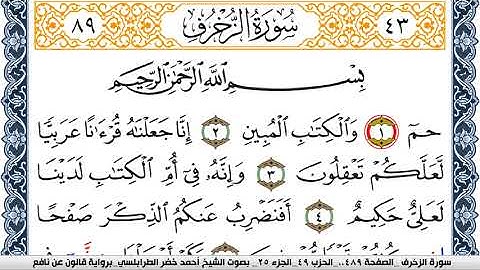 ٨٩ سُورَةُ الزُّخْرُفِ ٤٣
بِسْمِ اللَّهِ الرَّحْمَٰنِ الرَّحِيمِ
حمٓ ١ وَالْكِتَابِ الْمُبِينِ ٢ إِنَّا جَعَلْنَاهُ قُرْءَانًا عَرَبِيًّا
لَعَلَّكُمْ تَعْقِلُونَ ٣ وَإِنَّهُ فِي أُمِّ الْكِتَابِ لَدَيْنَا
لَعَلِيٌّ حَكِيمٌ ٤ أَفَنَضْرِبُ عَنكُمُ الذِّكْرَ صَفْحًا
سورة الزخرف _الصفحة ٤٨٩.. الحزب ٤٩_الجزء ٢٥_ بصوت الشيخ أحمد خضر الطرابلسي_برواية قالون عن نافع